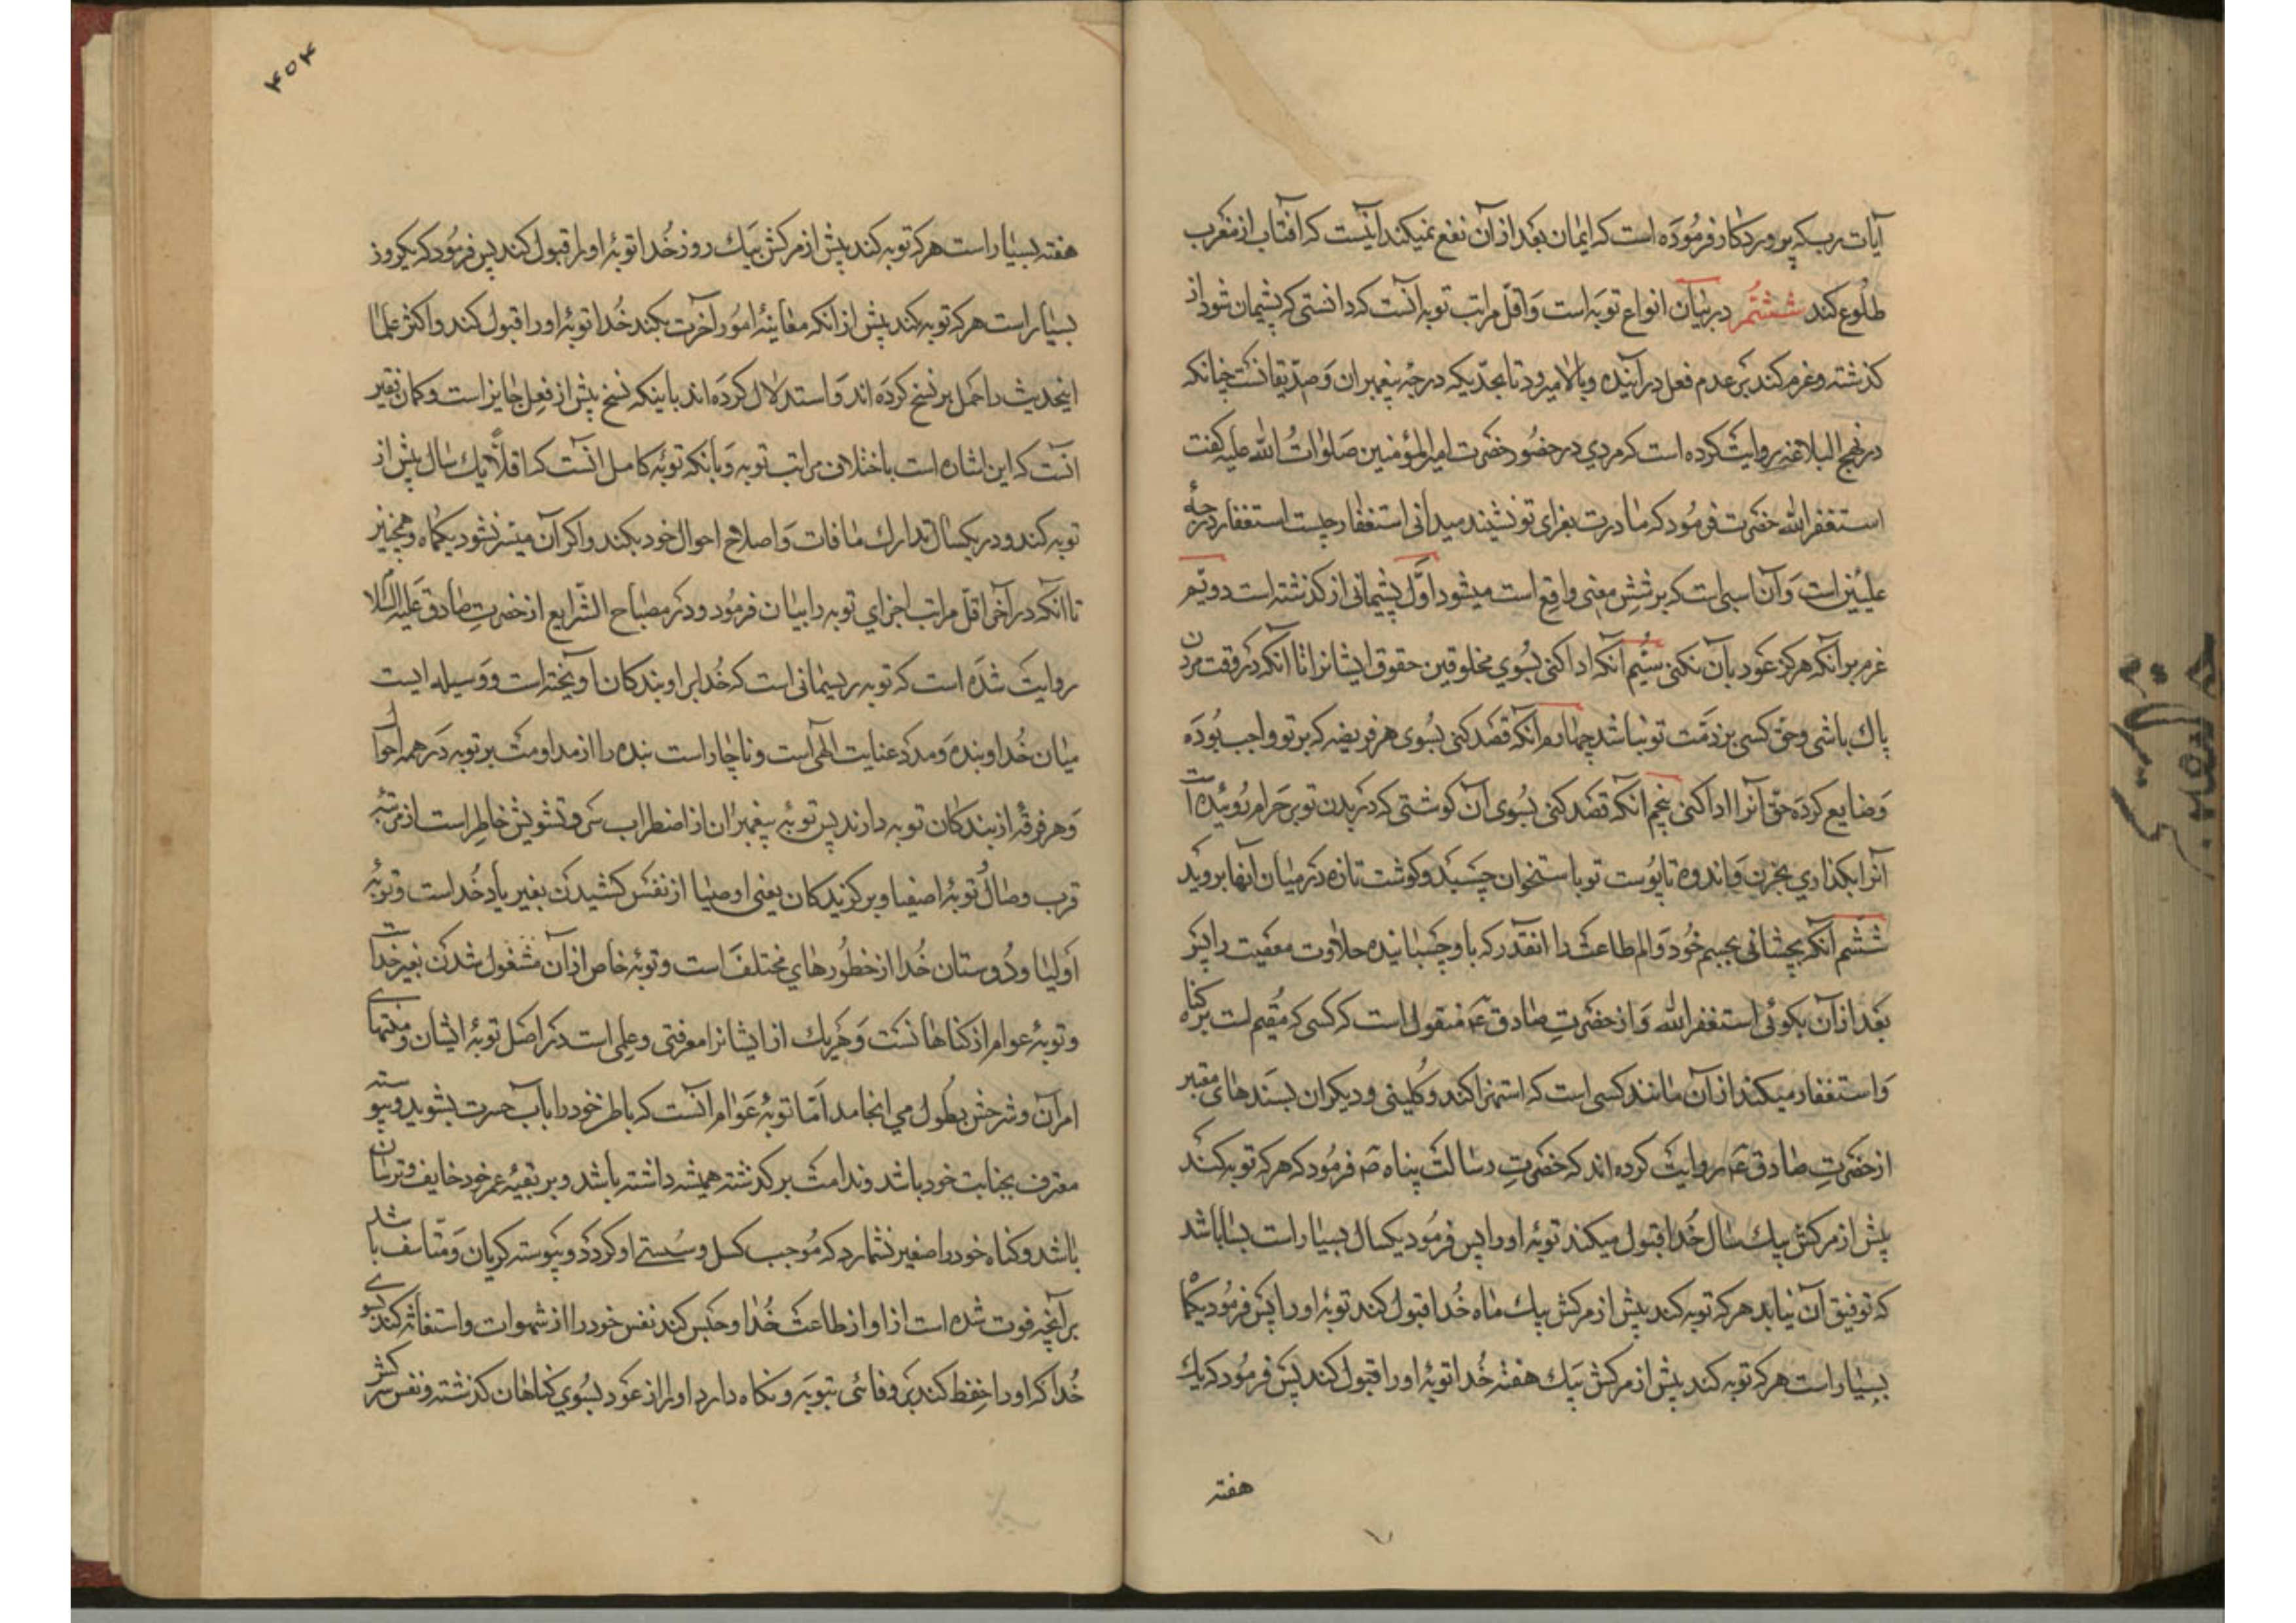 آیات رب که پروردکار فرموده است که ایمان بعد از آن نفع نمیکند اینست که افتاب از مغرب
طلوع کند ششتم در بیان انواع توبه است و اقل مراتب توبه انست که دانستی که پشیمان شود از
کذشته و عزم کند بر عدم فعل در آینده و بالا میرود تا بحدیکه درجه پیغمبران و صدیقانست چنانکه
در نهج البلاغه روایت کرده است که مردی در حضور حضرت امیر المؤمنین صلوات الله علیه کفت
استغفر الله حضرت فرمود که مادرت بعزای تو نشیند میدانی استغفار چیست استغفار درجهٔ
علیین است و آن اسمی است که بر شش معنی واقع است میشود اول پشیمانی از کذشته است دویم
عزم بر انکه هرکز عود بآن نکنی سیم آنکه ادا کنی بسوی مخلوقین حقوق ایشانرا تا آنکه در وقت مردن
پاک باشی و حق کسی بر ذمت تو نباشد چهارم انکه قصد کنی بسوی هر فریضه که بر تو واجب بوده
و ضایع کرده حق آنرا ادا کنی پنجم انکه قصد کنی بسوی آن کوشتی که در بدن تو بر حرام روئیده است
آنرا بکذاری بحزن و اندوه تا پوست تو باستخوان چسبد و کوشت تازه در میان آنها بروید
ششم آنکه بچشانی بجسم خود و الم طاعت را انقدر که باو چسبانیده حلاوت معصیت را پس
بعد از آن بکوئی استغفر الله و از حضرت صادق ع منقول است که کسی که مقیم است بر کناه
و استغفار میکند از آن مانند کسی است که استهزا کند و کلینی و دیکران بسندهای معتبر
از حضرت صادق ع روایت کرده اند که حضرت رسالت پناه ص فرمود که هر که توبه کند
پیش از مرکش بیک سال خدا قبول میکند توبهٔ او را پس فرمود یکسال بسیار است بسا باشد
که توفیق آن نیابد هر که توبه کند پیش از مرکش بیک ماه خدا قبول کند توبهٔ او را پس فرمود یکماه
بسیار است هر که توبه کند پیش از مرکش بیک هفته خدا توبهٔ او را قبول کند پس فرمود که یک
هفته
۴۰۴
هفته بسیار است هر که توبه کند پیش از مرکش بیک روز خدا توبهٔ او را قبول کند پس فرمود که یکروز
بسیار است هر که توبه کند پیش از انکه معاینهٔ امور آخرت بکند خدا توبهٔ او را قبول کند و اکثر علما
اینحدیث را حمل بر نسخ کرده اند و استدلال کرده اند باینکه نسخ پیش از فعل جایز است و کمان فقیر
انست که این اشاره است باختلاف مراتب توبه و بانکه توبهٔ کامل آنست که اقلا یک سال پیش از
توبه کند و در یکسال تدارک مافات و اصلاح احوال خود بکند و اکر آن میسر نشود یکماه و همچنین
تا انکه در آخر اقل مراتب اجزای توبه را بیان فرمود و در مصباح الشرایع از حضرت صادق علیه السلام
روایت شده است که توبه ریسمانی است که خدا برای بندکان آویخته است و وسیله ایست
میان خدا و بنده و مدد عنایت الهی است و ناچار است بنده را از مداومت بر توبه در همه احوال
و هر فرقه از بندکان توبه دارند پس توبهٔ پیغمبران از اضطراب سر و تشویش خاطر است از مرتبهٔ
قرب وصال توبهٔ اصفیا و برکزیدکان یعنی اوصیا از نفس کشیدن بغیر یاد خداست و توبهٔ
اولیا و دوستان خدا از خطورهای مختلف است و توبهٔ خاص از آن مشغول شدن بغیر خداست
و توبهٔ عوام از کناهانست و هریک از ایشانرا معرفتی و علمی است در اصل توبهٔ ایشان و منتهای
امر آن و شرحش بطول می انجامد اما توبهٔ عوام آنست که باطن خود را بآب حسرت بشوید و پیوسته
معترف بجنایت خود باشد و ندامت بر کذشته همیشه داشته باشد و بر بقیهٔ عمر خود خایف و ترسان
باشد و کناه خود را صغیر نشمارد که موجب کسل و سستی او کردد و پیوسته کریان و متاسف باشد
بر آنچه فوت شده است از او از طاعت خدا و حبس کند نفس خود را از شهوات و استغاثه کند بسوی
خدا که او را حفظ کند بر وفائی بتوبه و نکاه دارد او را از عود بسوی کناهان کذشته و نفس سرکش